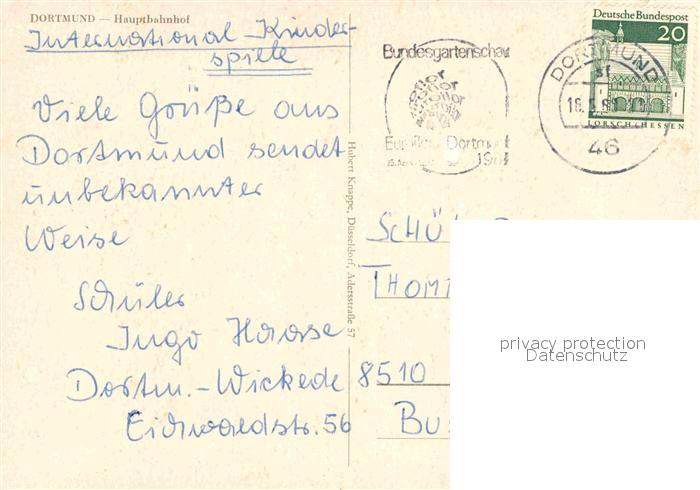 DORTMUND — Hauptbahnhof
International Kinder-
spiele
Viele Grüße aus
Dortmund sendet
unbekannter
Weise
Schüler
Ingo Haase
Dortm.-Wickede
Eichwaldstr. 56
Hubert Knappe, Düsseldorf, Adersstraße 57
Bundesgartenschau
Euroflor Dortmund
Deutsche Bundespost
20
LORSCH/HESSEN
DORTMUND
46
8510
privacy protection
Datenschutz